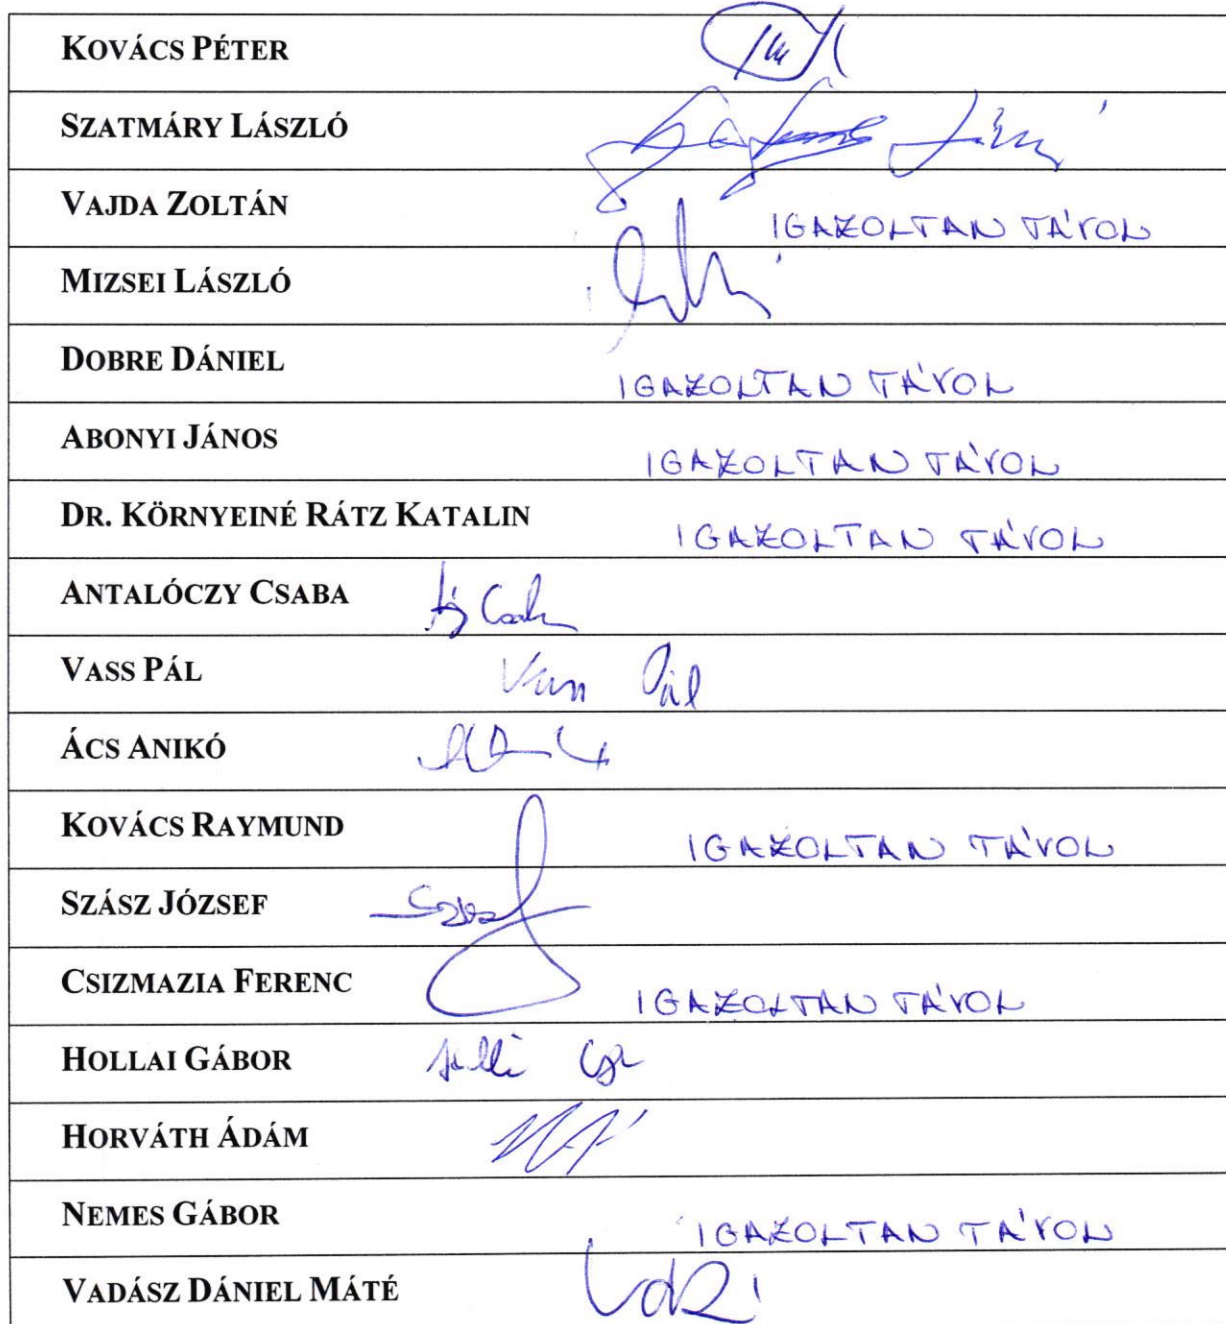 KOVÁCS PÉTER
SZATMÁRY LÁSZLÓ
VAJDA ZOLTÁN IGAZOLTAN TÁVOL
MIZSEI LÁSZLÓ
DOBRE DÁNIEL IGAZOLTAN TÁVOL
ABONYI JÁNOS IGAZOLTAN TÁVOL
DR. KÖRNYEINÉ RÁTZ KATALIN IGAZOLTAN TÁVOL
ANTALÓCZY CSABA
VASS PÁL Vass Pál
ÁCS ANIKÓ
KOVÁCS RAYMUND IGAZOLTAN TÁVOL
SZÁSZ JÓZSEF
CSIZMAZIA FERENC IGAZOLTAN TÁVOL
HOLLAI GÁBOR
HORVÁTH ÁDÁM
NEMES GÁBOR IGAZOLTAN TÁVOL
VADÁSZ DÁNIEL MÁTÉ